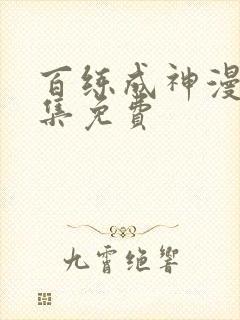 百练成神漫
集免费
九霄绝响